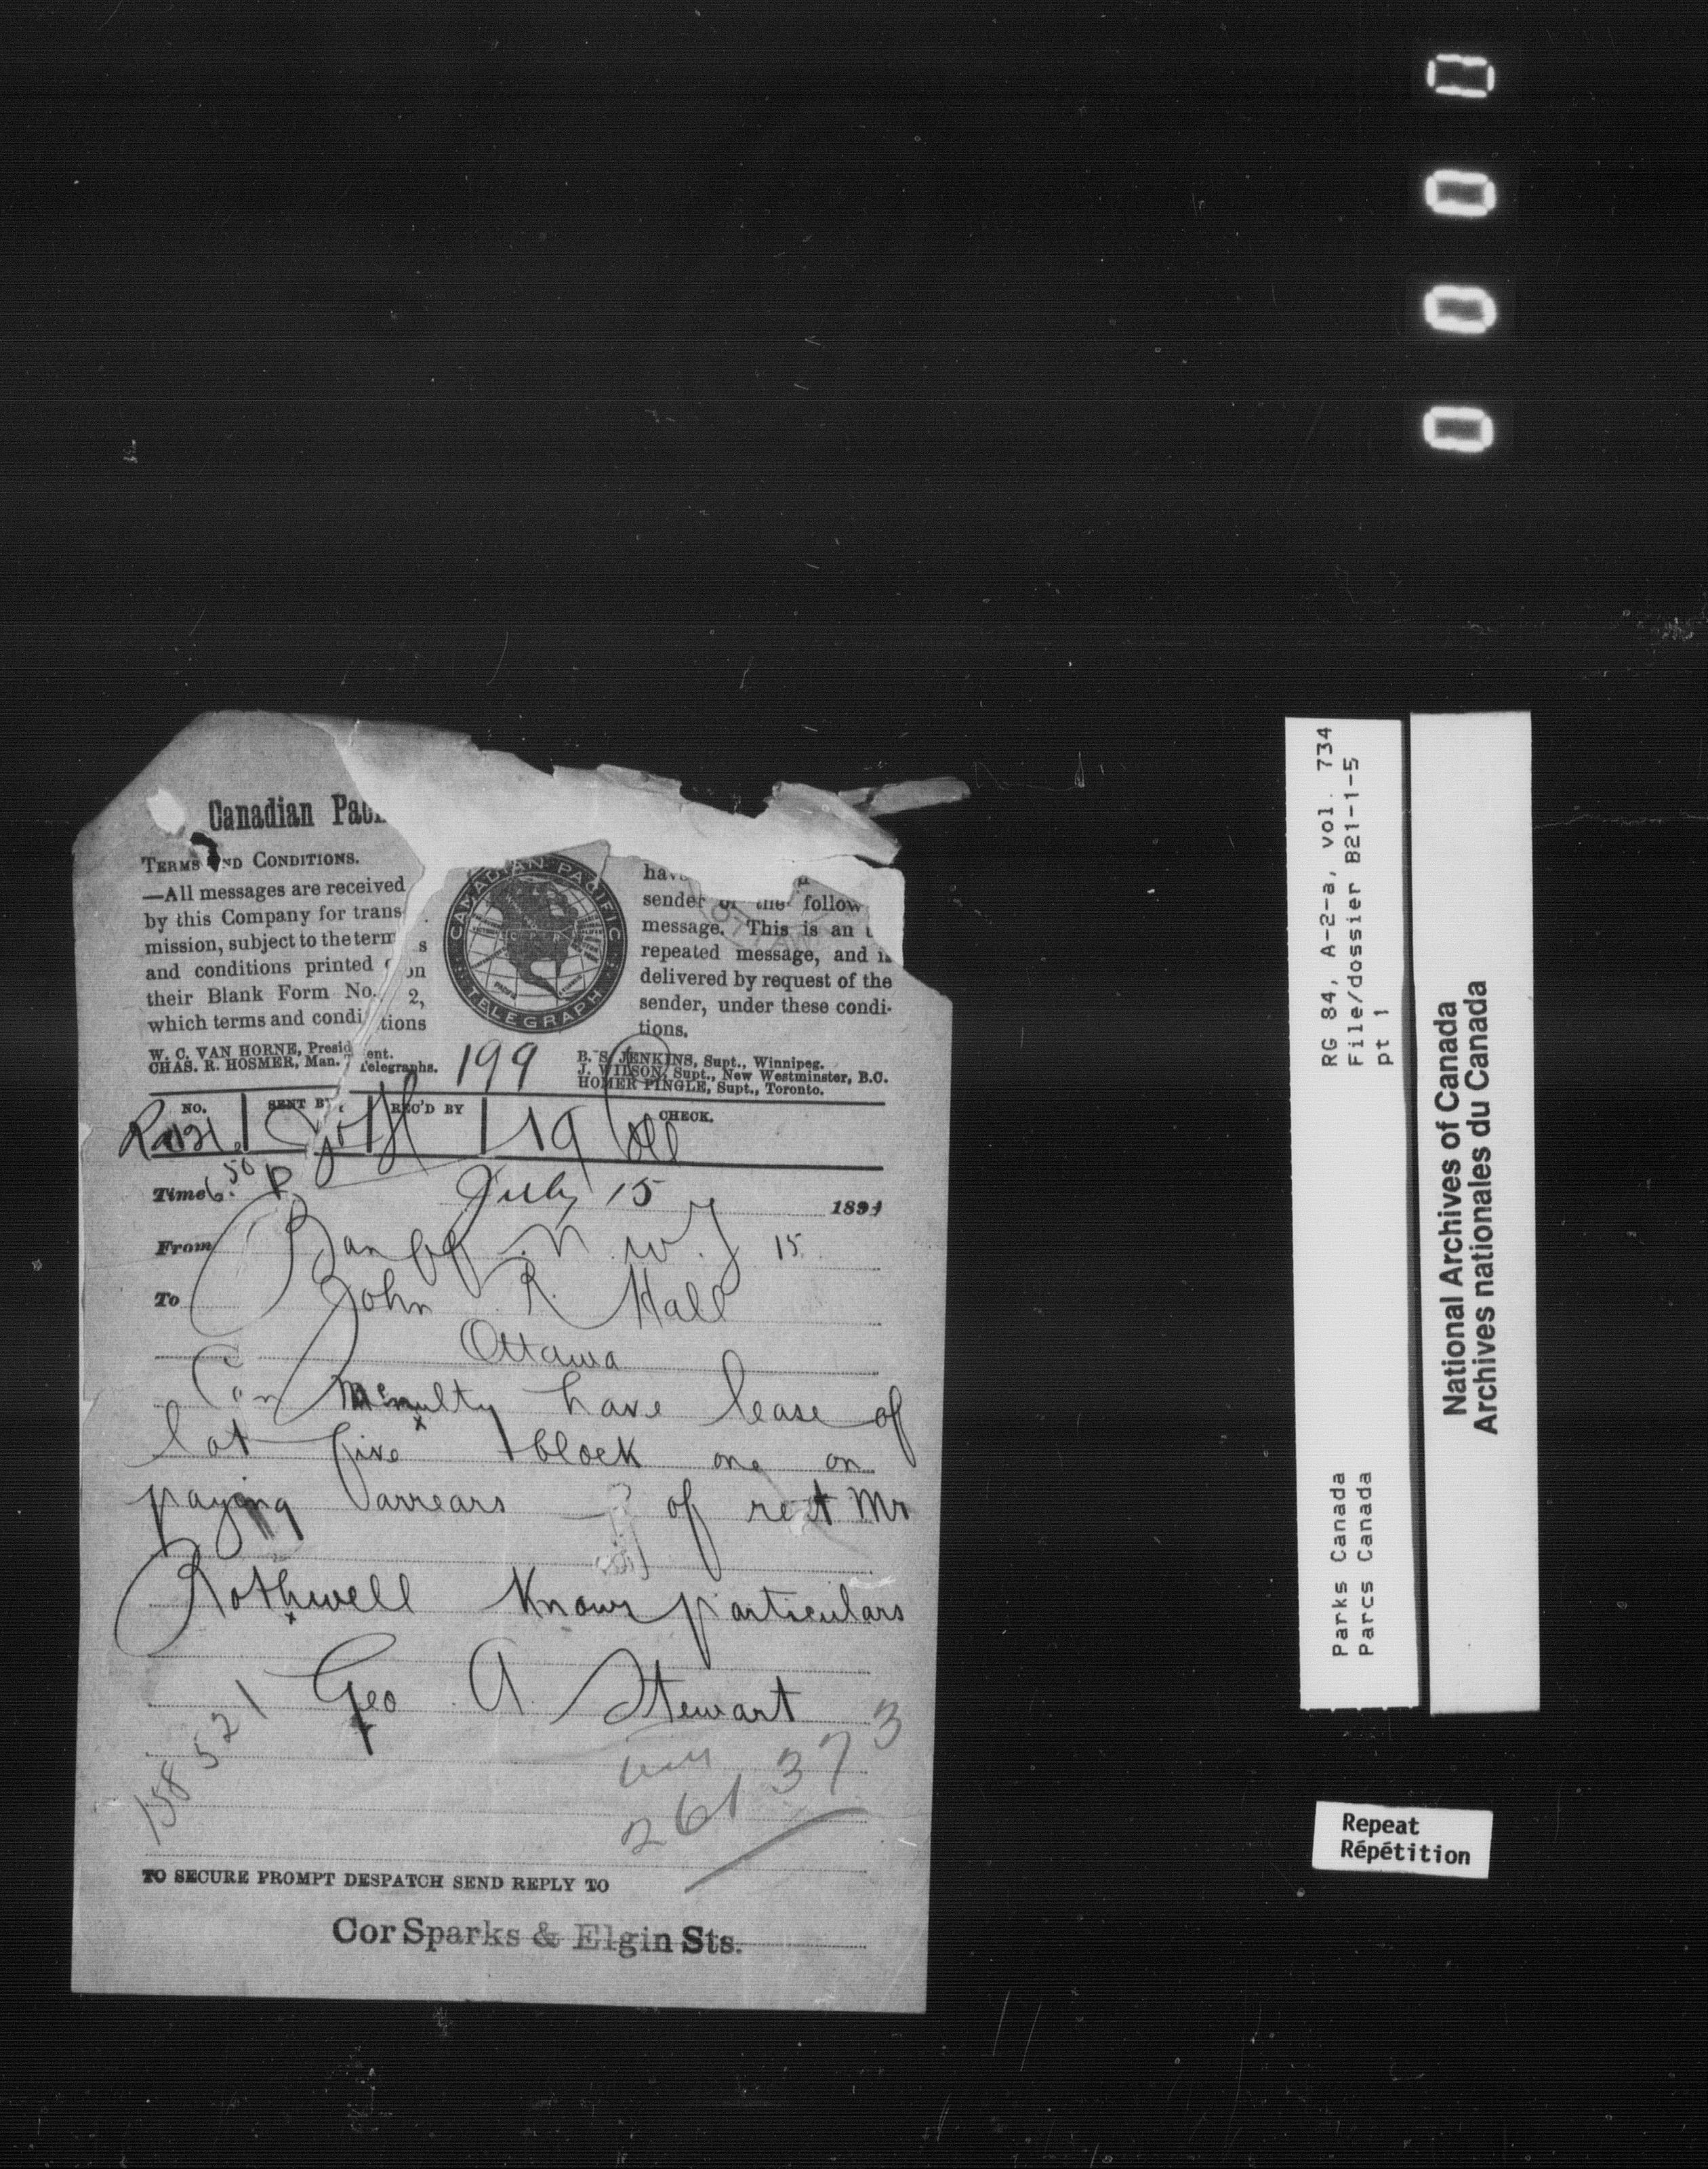 0000
Canadian Pac
TERMS AND CONDITIONS.
—All messages are received
by this Company for trans-
mission, subject to the terms
and conditions printed on
their Blank Form No. 2,
which terms and conditions
CANADIAN PACIFIC
C P R
TELEGRAPH
have
sender of the follow
message. This is an
repeated message, and is
delivered by request of the
sender, under these condi-
tions.
W. C. VAN HORNE, President.
CHAS. R. HOSMER, Man. Telegraphs.
199
B. S. JENKINS, Supt., Winnipeg.
J. WILSON, Supt., New Westminster, B.C.
HOMER PINGLE, Supt., Toronto.
NO. SENT BY REC'D BY CHECK.
19
Time 6.50 P July 15 1891
From Banff N.W.T 15
To John R. Hall
Ottawa
Can McNulty have lease of
lot five block one on
paying arrears of rent Mr
Rothwell knows particulars
Geo A. Stewart
158521
261373
TO SECURE PROMPT DESPATCH SEND REPLY TO
Cor Sparks & Elgin Sts.
RG 84, A-2-a, vol. 734
File/dossier B21-1-5
pt 1
Parks Canada
Parcs Canada
National Archives of Canada
Archives nationales du Canada
Repeat
Répétition